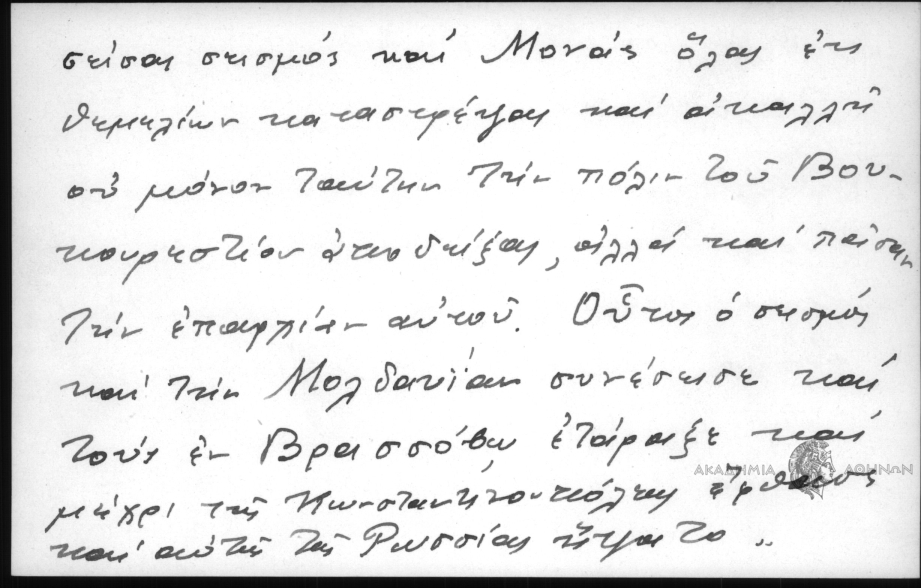 σείσας σεισμός καί Μονάς ὅλας ἐκ
θεμελίων καταστρέψας καί ἀκαλλῆ
οὐ μόνον ταύτην τήν πόλιν τοῦ Βου-
κουρεστίου ἀποδείξας, ἀλλά καί πᾶσαν
τήν ἐπαρχίαν αὐτοῦ. Οὗτος ὁ σεισμός
καί τήν Μολδαυΐαν συνέσεισε καί
τούς ἐν Βρασσόβῳ ἐτάραξε καί
μέχρι τῆς Κωνσταντινουπόλεως ἔφθασε
καί αὐτῆς τῆς Ρωσσίας ἥψατο „
ΑΚΑΔΗΜΙΑ ΑΘΗΝΩΝ